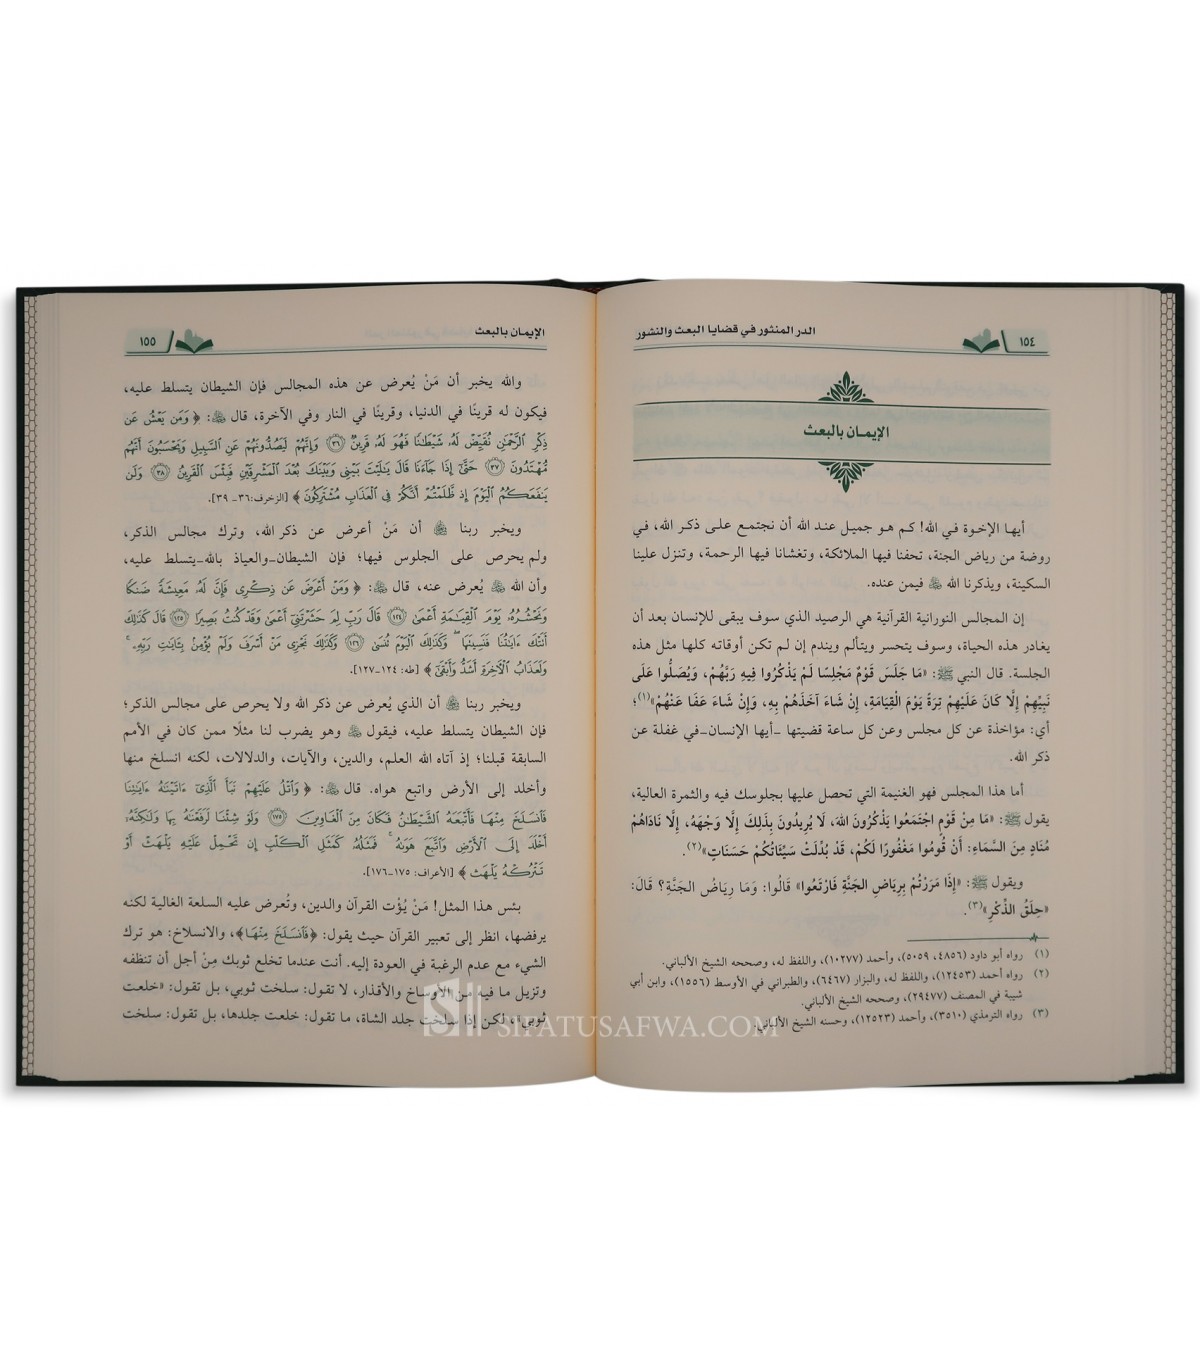 ١٥٤
الدر المنثور في قضايا البعث والنشور
الإيمان بالبعث
أيها الإخوة في الله! كم هو جميل عند الله أن نجتمع على ذكر الله، في
روضة من رياض الجنة، تحفنا فيها الملائكة، وتغشانا فيها الرحمة، وتنزل علينا
السكينة، ويذكرنا الله ﷻ فيمن عنده.
إن المجالس النورانية القرآنية هي الرصيد الذي سوف يبقى للإنسان بعد أن
يغادر هذه الحياة، وسوف يتحسر ويتألم ويندم إن لم تكن أوقاته كلها مثل هذه
الجلسة. قال النبي ﷺ: «مَا جَلَسَ قَوْمٌ مَجْلِسًا لَمْ يَذْكُرُوا فِيهِ رَبَّهُمْ، وَيُصَلُّوا عَلَى
نَبِيِّهِمْ إِلَّا كَانَ عَلَيْهِمْ تِرَةً يَوْمَ الْقِيَامَةِ، إِنْ شَاءَ آخَذَهُمْ بِهِ، وَإِنْ شَاءَ عَفَا عَنْهُمْ»(١)؛
أي: مؤاخذة عن كل مجلس وعن كل ساعة قضيتها -أيها الإنسان-في غفلة عن
ذكر الله.
أما هذا المجلس فهو الغنيمة التي تحصل عليها بجلوسك فيه والثمرة العالية،
يقول ﷺ: «مَا مِنْ قَوْمٍ اجْتَمَعُوا يَذْكُرُونَ اللهَ، لَا يُرِيدُونَ بِذَلِكَ إِلَّا وَجْهَهُ، إِلَّا نَادَاهُمْ
مُنَادٍ مِنَ السَّمَاءِ: أَنْ قُومُوا مَغْفُورًا لَكُمْ، قَدْ بُدِّلَتْ سَيِّئَاتُكُمْ حَسَنَاتٍ»(٢).
ويقول ﷺ: «إِذَا مَرَرْتُمْ بِرِيَاضِ الجَنَّةِ فَارْتَعُوا» قَالُوا: وَمَا رِيَاضُ الجَنَّةِ؟ قَالَ:
«حِلَقُ الذِّكْرِ»(٣).
(١) رواه أبو داود (٤٨٥٦، ٥٠٥٩)، وأحمد (١٠٢٧٧)، واللفظ له، وصححه الشيخ الألباني.
(٢) رواه أحمد (١٢٤٥٣)، واللفظ له، والبزار (٦٤٦٧)، والطبراني في الأوسط (١٥٥٦)، وابن أبي
شيبة في المصنف (٢٩٤٧٧)، وصححه الشيخ الألباني.
(٣) رواه الترمذي (٣٥١٠)، وأحمد (١٢٥٢٣)، وحسنه الشيخ الألباني.
الإيمان بالبعث
١٥٥
والله يخبر أن مَنْ يُعرض عن هذه المجالس فإن الشيطان يتسلط عليه،
فيكون له قرينًا في الدنيا، وقرينًا في النار وفي الآخرة، قال ﷻ: ﴿ وَمَن يَعْشُ عَن
ذِكْرِ ٱلرَّحْمَٰنِ نُقَيِّضْ لَهُۥ شَيْطَٰنًا فَهُوَ لَهُۥ قَرِينٌ ٣٦ وَإِنَّهُمْ لَيَصُدُّونَهُمْ عَنِ ٱلسَّبِيلِ وَيَحْسَبُونَ أَنَّهُم
مُّهْتَدُونَ ٣٧ حَتَّىٰٓ إِذَا جَآءَنَا قَالَ يَٰلَيْتَ بَيْنِى وَبَيْنَكَ بُعْدَ ٱلْمَشْرِقَيْنِ فَبِئْسَ ٱلْقَرِينُ ٣٨ وَلَن
يَنفَعَكُمُ ٱلْيَوْمَ إِذ ظَّلَمْتُمْ أَنَّكُمْ فِى ٱلْعَذَابِ مُشْتَرِكُونَ ﴾ [الزخرف:٣٦- ٣٩].
ويخبر ربنا ﷻ أن مَنْ أعرض عن ذكر الله، وترك مجالس الذكر،
ولم يحرص على الجلوس فيها؛ فإن الشيطان-والعياذ بالله-يتسلط عليه،
وأن الله ﷻ يُعرض عنه، قال ﷻ: ﴿ وَمَنْ أَعْرَضَ عَن ذِكْرِى فَإِنَّ لَهُۥ مَعِيشَةً ضَنكًا
وَنَحْشُرُهُۥ يَوْمَ ٱلْقِيَٰمَةِ أَعْمَىٰ ١٢٤ قَالَ رَبِّ لِمَ حَشَرْتَنِىٓ أَعْمَىٰ وَقَدْ كُنتُ بَصِيرًا ١٢٥ قَالَ كَذَٰلِكَ
أَتَتْكَ ءَايَٰتُنَا فَنَسِينَهَا ۖ وَكَذَٰلِكَ ٱلْيَوْمَ تُنسَىٰ ١٢٦ وَكَذَٰلِكَ نَجْزِى مَنْ أَسْرَفَ وَلَمْ يُؤْمِنۢ بِـَٔايَٰتِ رَبِّهِۦ ۚ
وَلَعَذَابُ ٱلْءَاخِرَةِ أَشَدُّ وَأَبْقَىٰٓ ﴾ [طه: ١٢٤-١٢٧].
ويخبر ربنا ﷻ أن الذي يُعرض عن ذكر الله ولا يحرص على مجالس الذكر؛
فإن الشيطان يتسلط عليه، فيقول ﷻ وهو يضرب لنا مثلًا ممن كان في الأمم
السابقة قبلنا؛ إذ آتاه الله العلم، والدين، والآيات، والدلالات، لكنه انسلخ منها
وأخلد إلى الأرض واتبع هواه. قال ﷻ: ﴿ وَٱتْلُ عَلَيْهِمْ نَبَأَ ٱلَّذِىٓ ءَاتَيْنَٰهُ ءَايَٰتِنَا
فَٱنسَلَخَ مِنْهَا فَأَتْبَعَهُ ٱلشَّيْطَٰنُ فَكَانَ مِنَ ٱلْغَاوِينَ ١٧٥ وَلَوْ شِئْنَا لَرَفَعْنَٰهُ بِهَا وَلَٰكِنَّهُۥٓ
أَخْلَدَ إِلَى ٱلْأَرْضِ وَٱتَّبَعَ هَوَىٰهُ ۚ فَمَثَلُهُۥ كَمَثَلِ ٱلْكَلْبِ إِن تَحْمِلْ عَلَيْهِ يَلْهَثْ أَوْ
تَتْرُكْهُ يَلْهَث ﴾ [الأعراف: ١٧٥-١٧٦].
بئس هذا المثل! مَنْ يُؤْت القرآن والدين، وتُعرض عليه السلعة الغالية لكنه
يرفضها، انظر إلى تعبير القرآن حيث يقول: ﴿فَٱنسَلَخَ مِنْهَا﴾، والانسلاخ: هو ترك
الشيء مع عدم الرغبة في العودة إليه. أنت عندما تخلع ثوبك مِنْ أجل أن تنظفه
وتزيل ما فيه من الأوساخ والأقذار، لا تقول: سلخت ثوبي، بل تقول: «خلعت
ثوبي»، لكن إذا سلخت جلد الشاة، ما تقول: خلعت جلدها، بل تقول: سلخت
SIFATUSAFWA.COM